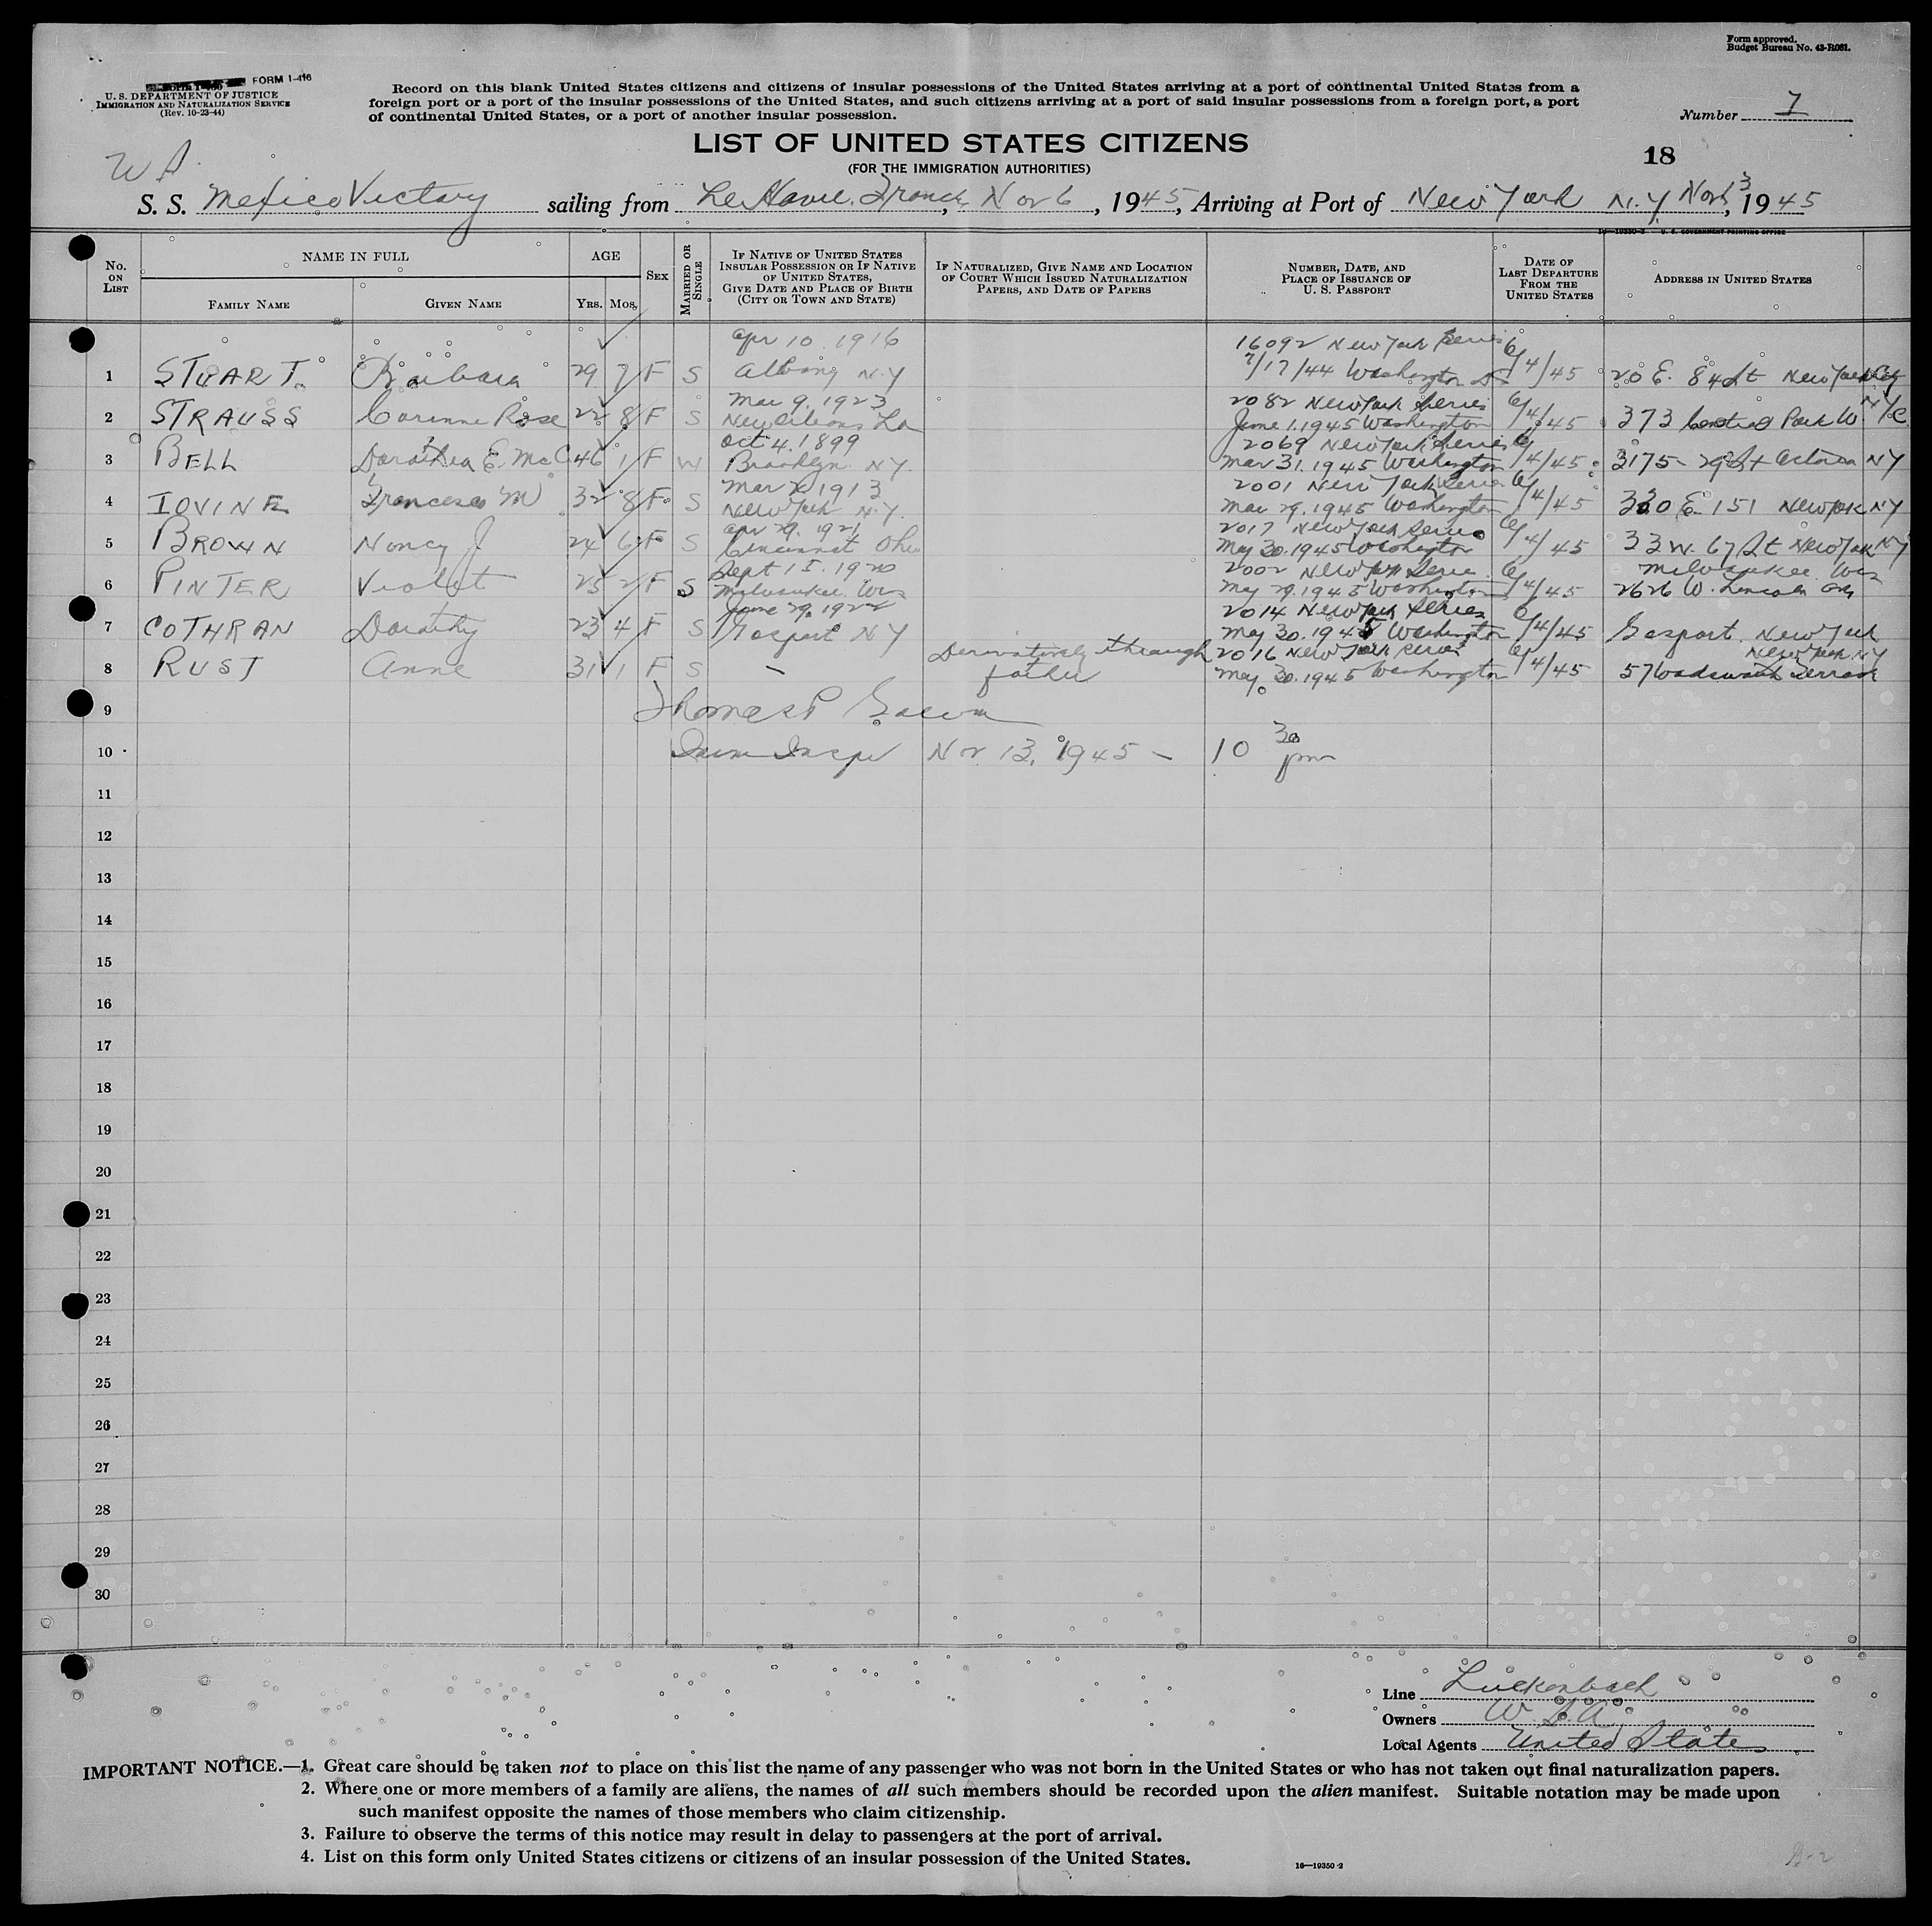 Form approved.
Budget Bureau No. 43-R081.
FORM I-416
U. S. DEPARTMENT OF JUSTICE
IMMIGRATION AND NATURALIZATION SERVICE
(Rev. 10-23-44)
Record on this blank United States citizens and citizens of insular possessions of the United States arriving at a port of continental United States from a
foreign port or a port of the insular possessions of the United States, and such citizens arriving at a port of said insular possessions from a foreign port, a port
of continental United States, or a port of another insular possession.
Number 7
LIST OF UNITED STATES CITIZENS
(FOR THE IMMIGRATION AUTHORITIES)
18
S. S. Mexico Victory sailing from Le Havre, France, Nov 6, 1945, Arriving at Port of New York N.Y. Nov 13, 1945
16—19350-2 U. S. GOVERNMENT PRINTING OFFICE
No. ON LIST
NAME IN FULL
FAMILY NAME
GIVEN NAME
AGE
YRS.
MOS.
SEX
MARRIED OR SINGLE
IF NATIVE OF UNITED STATES INSULAR POSSESSION OR IF NATIVE OF UNITED STATES, GIVE DATE AND PLACE OF BIRTH (CITY OR TOWN AND STATE)
IF NATURALIZED, GIVE NAME AND LOCATION OF COURT WHICH ISSUED NATURALIZATION PAPERS, AND DATE OF PAPERS
NUMBER, DATE, AND PLACE OF ISSUANCE OF U. S. PASSPORT
DATE OF LAST DEPARTURE FROM THE UNITED STATES
ADDRESS IN UNITED STATES
Apr 10. 1916 16092 New York Series
1 STUART. Barbara 29 7 F S Albany N.Y 7/17/44 Washington 6/4/45 20 E. 84 St New York City
Mar 9. 1923 2082 New York Series
2 STRAUSS Corinne Rose 22 8 F S New Orleans La June 1. 1945 Washington 6/4/45 373 Central Park W. NYC
Oct 4. 1899 2069 New York Series
3 BELL Dorothea E. McC 46 1 F W Brooklyn NY. Mar 31. 1945 Washington 6/4/45 3175 - 29 St Astoria NY
Mar 2 1913 2001 New York Series
4 IOVINE Francesca M 32 8 F S New York N.Y. Mar 29. 1945 Washington 6/4/45 330 E. 151 New York NY
Apr 29. 1921 2017 New York Series
5 BROWN Nancy J 24 6 F S Cincinnati Ohio May 30. 1945 Washington 6/4/45 33 W. 67 St New York NY
Sept 15. 1920 2002 New York Series Milwaukee Wis
6 PINTER Violet 25 2 F S Milwaukee Wis May 29. 1945 Washington 6/4/45 2626 W. Lincoln Ave
June 29. 1922 2014 New York Series
7 COTHRAN Dorothy 23 4 F S Gasport NY May 30. 1945 Washington 6/4/45 Gasport New York
Derivatively through 2016 New York Series New York NY
8 RUST Anne 31 1 F S - father May 30. 1945 Washington 6/4/45 57 Wadsworth Terrace
9 Thomas P
10 Imm Inspr Nov 13, 1945 - 10 30 pm
11
12
13
14
15
16
17
18
19
20
21
22
23
24
25
26
27
28
29
30
Line Luckenbach
Owners W. S. A.
Local Agents United States
IMPORTANT NOTICE.—1. Great care should be taken not to place on this list the name of any passenger who was not born in the United States or who has not taken out final naturalization papers.
2. Where one or more members of a family are aliens, the names of all such members should be recorded upon the alien manifest. Suitable notation may be made upon
such manifest opposite the names of those members who claim citizenship.
3. Failure to observe the terms of this notice may result in delay to passengers at the port of arrival.
4. List on this form only United States citizens or citizens of an insular possession of the United States.
16—19350-2